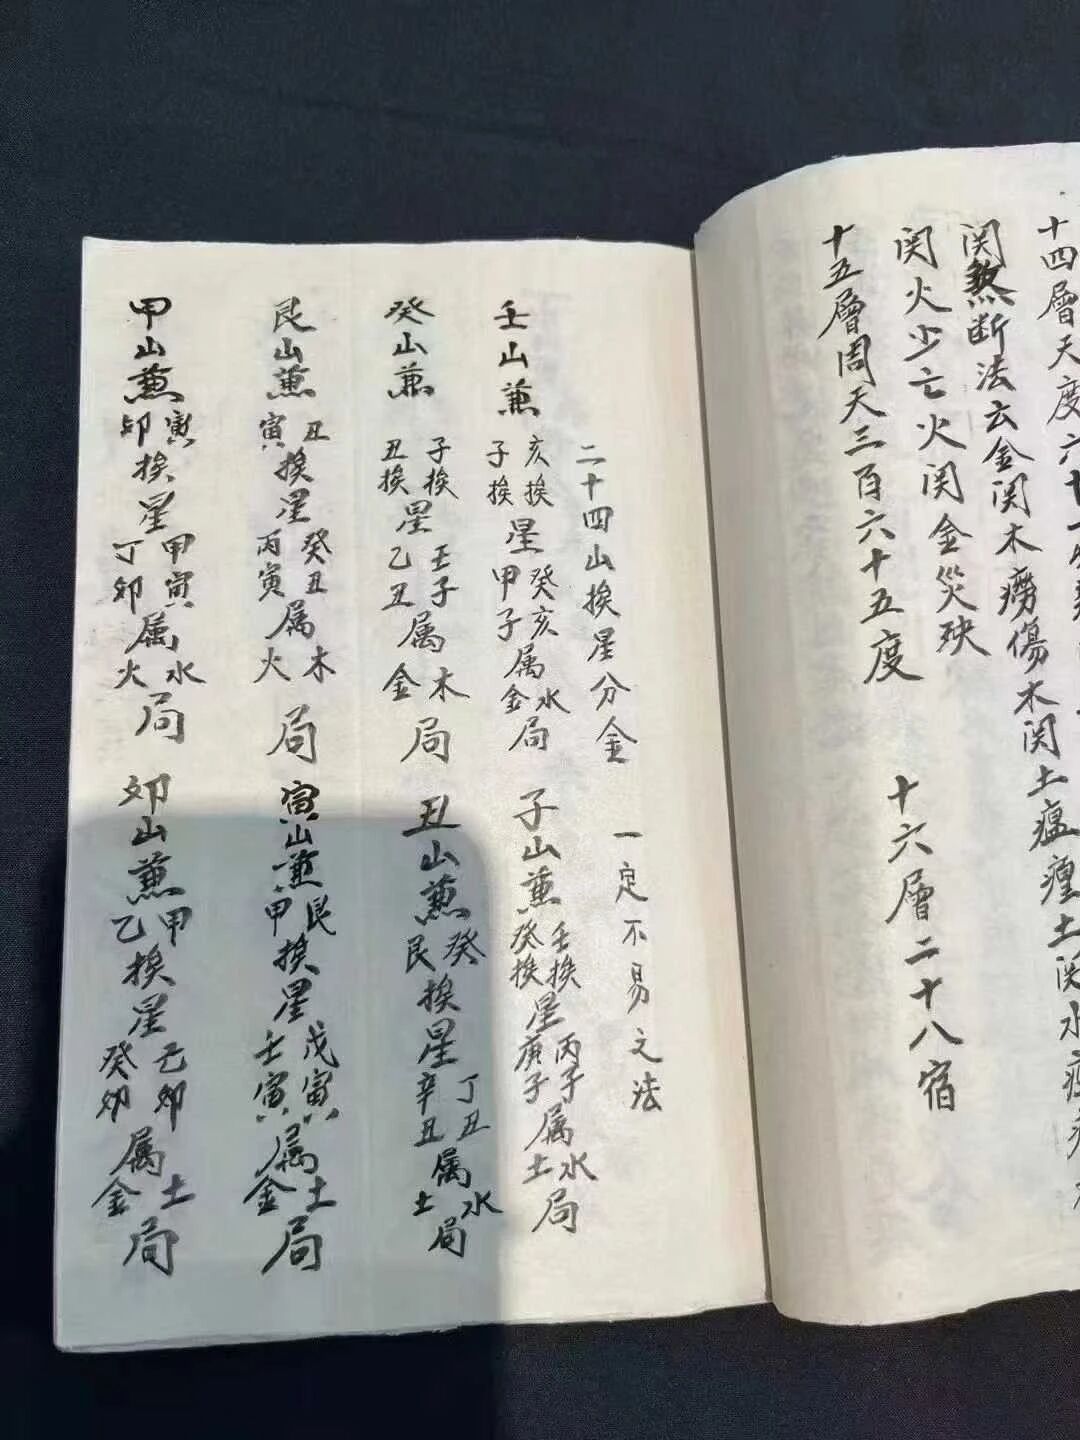 十四層天度六十一
関煞断法云金関木癆傷木関土瘟𤶊土関水
関火少亡火関金災殃
十五層周天三百六十五度　十六層二十八宿
二十四山挨星分金　一定不易之法
壬山兼亥挨子挨星癸亥甲子属水金局　子山兼壬挨癸挨星丙子庚子属水土局
癸山兼子挨丑挨星壬子乙丑属木金局　丑山兼癸艮挨星丁丑辛丑属水土局
艮山兼丑寅挨星癸丑丙寅属木火局　寅山兼艮甲挨星戊寅壬寅属土金局
甲山兼寅卯挨星甲寅丁卯属水火局　卯山兼甲乙挨星己卯癸卯属土金局